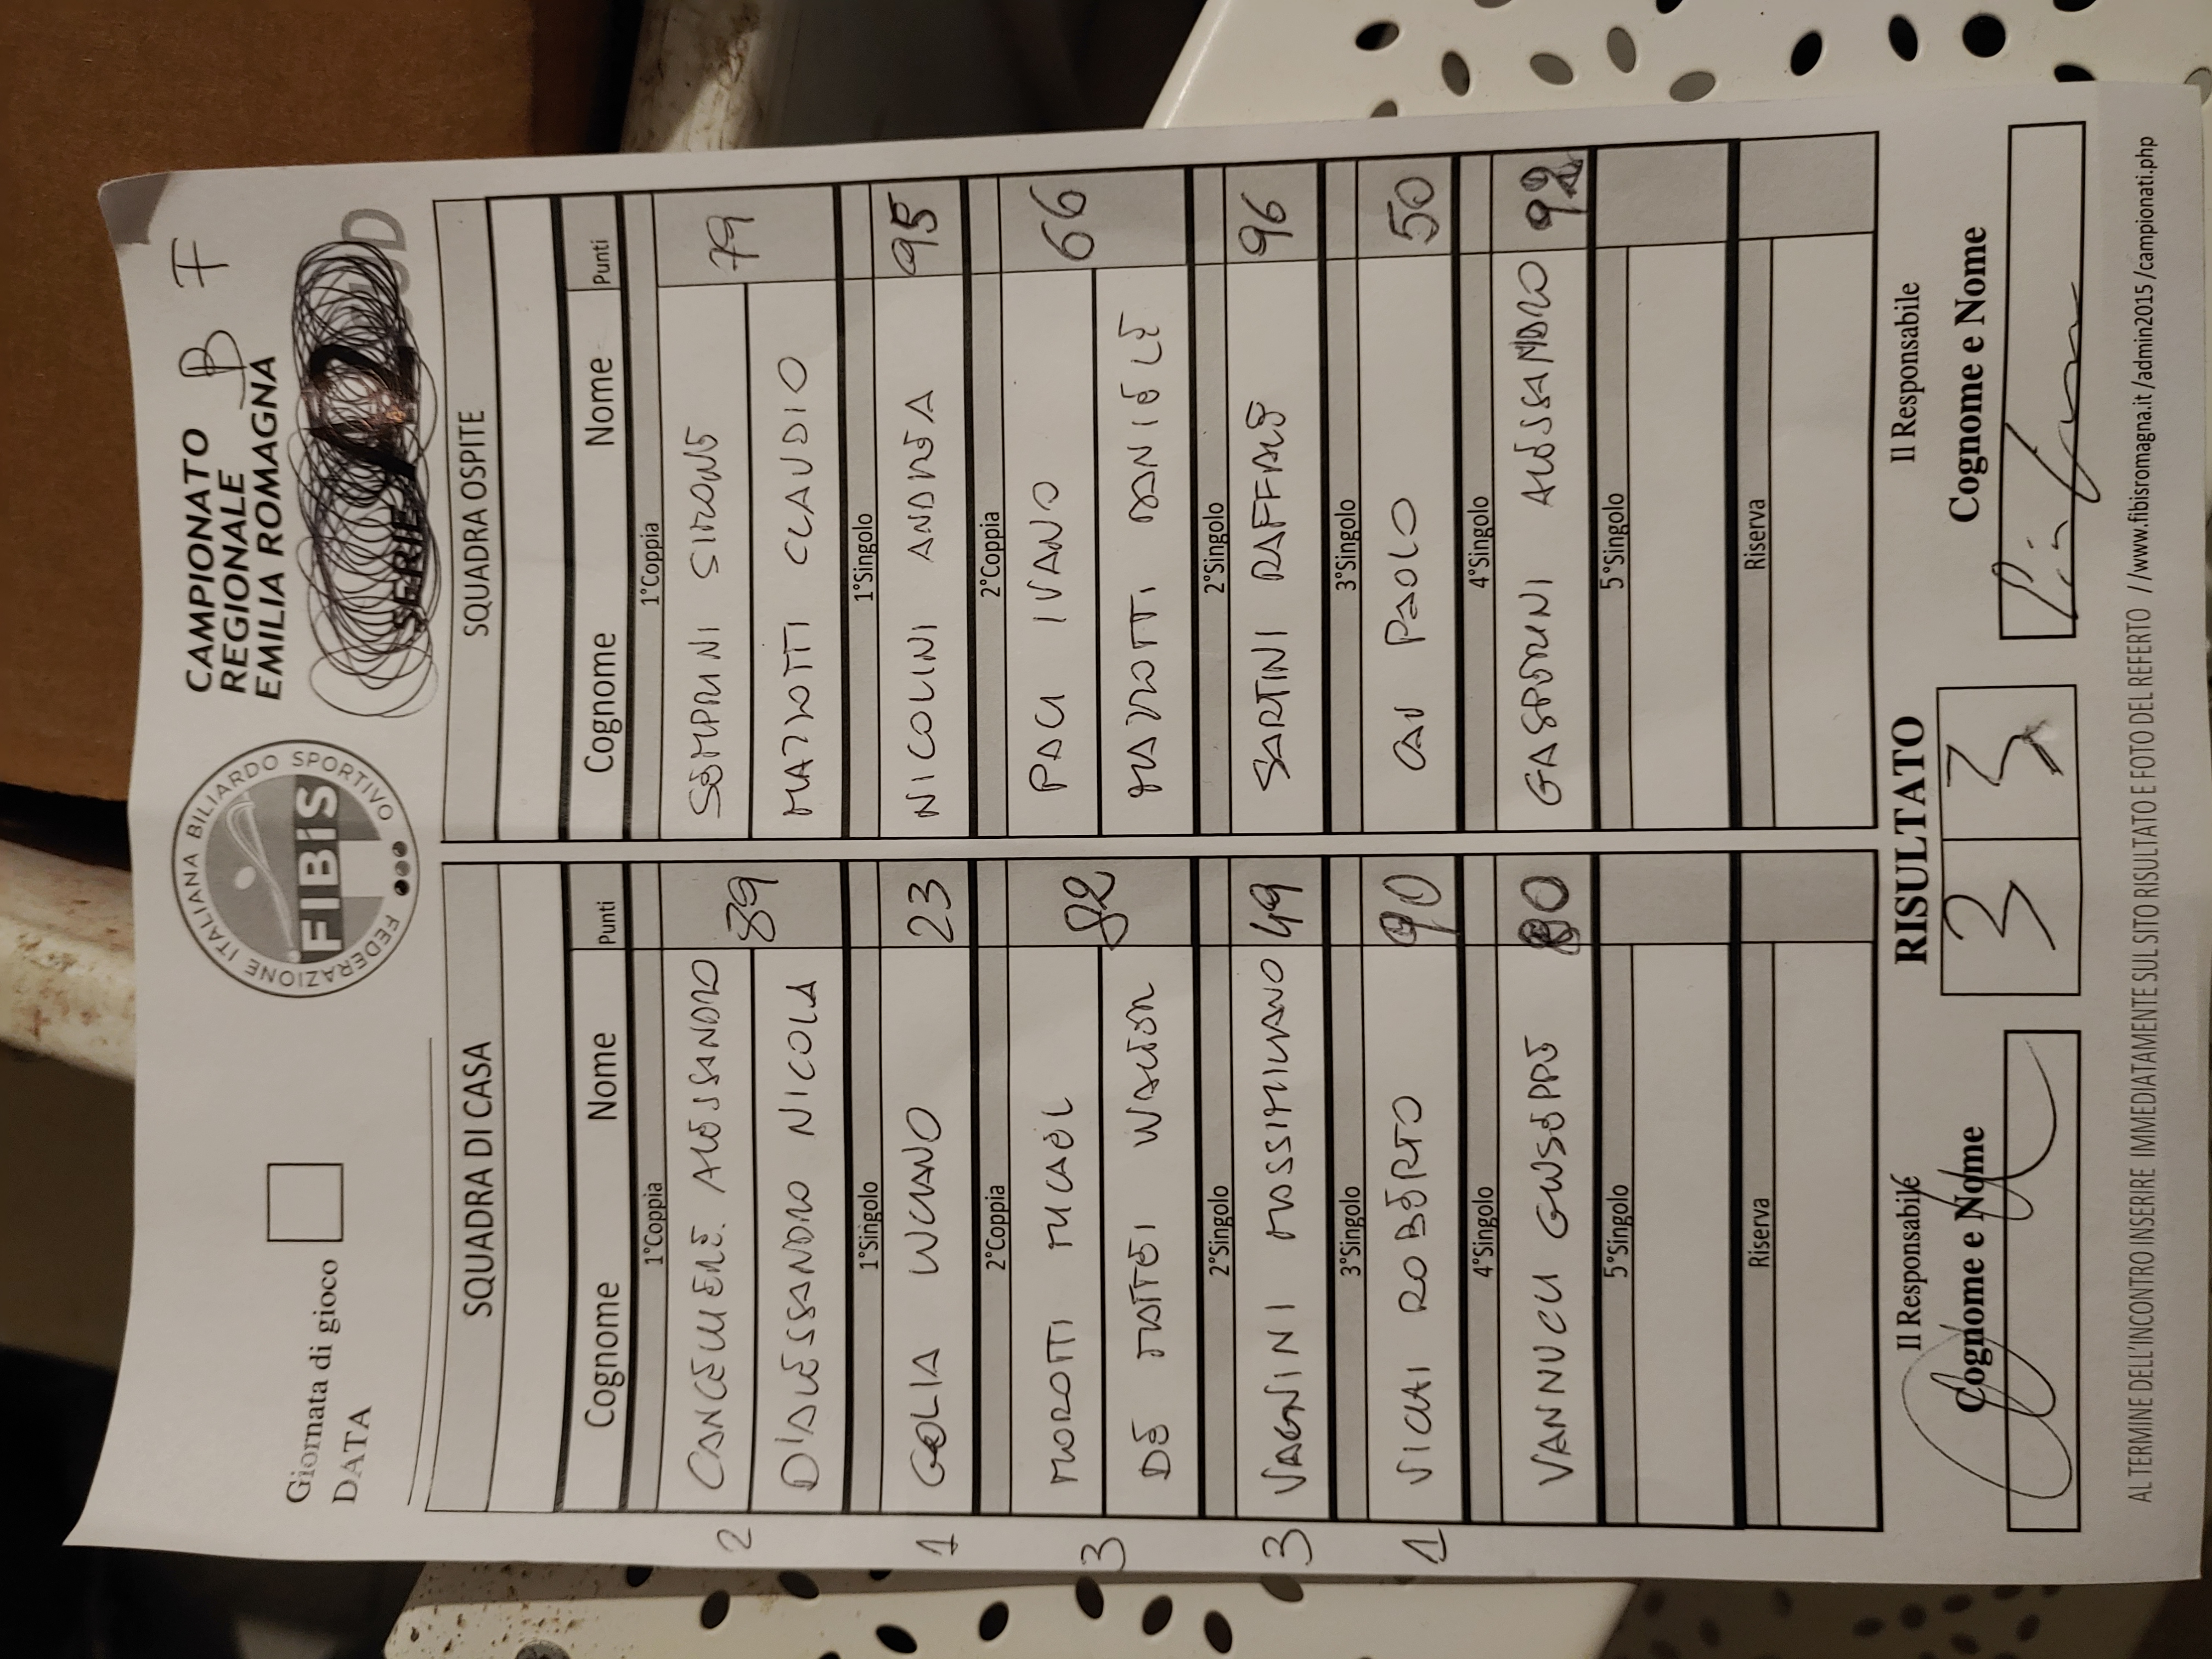 Giornata di gioco
DATA
FEDERAZIONE ITALIANA BILIARDO SPORTIVO
FIBiS
CAMPIONATO
REGIONALE
EMILIA ROMAGNA
B F
SERIE
SQUADRA DI CASA SQUADRA OSPITE
Cognome Nome Punti Cognome Nome Punti
1°Coppia 1°Coppia
2 CANCELLIERE ALESSANDRO 89 SEMPRINI SIMONE 79
D'ALESSANDRO NICOLA MAZZOTTI CLAUDIO
1°Singolo 1°Singolo
1 GOLIA LUCIANO 23 NICOLINI ANDREA 95
2°Coppia 2°Coppia
3 MOROTTI MICAEL 82 PACI IVANO 66
DE MATTEI WALTER MAZZOTTI DANIELE
2°Singolo 2°Singolo
3 VAGNINI MASSIMILIANO 49 SARTINI RAFFAELE 96
3°Singolo 3°Singolo
1 VICHI ROBERTO 90 PAOLO 50
4°Singolo 4°Singolo
VANNUCCI GIUSEPPE 80 GASPERINI ALESSANDRO 92
5°Singolo 5°Singolo
Riserva Riserva
Il Responsabile RISULTATO Il Responsabile
Cognome e Nome 3 3 Cognome e Nome
AL TERMINE DELL'INCONTRO INSERIRE IMMEDIATAMENTE SUL SITO RISULTATO E FOTO DEL REFERTO //www.fibisromagna.it /admin2015 /campionati.php